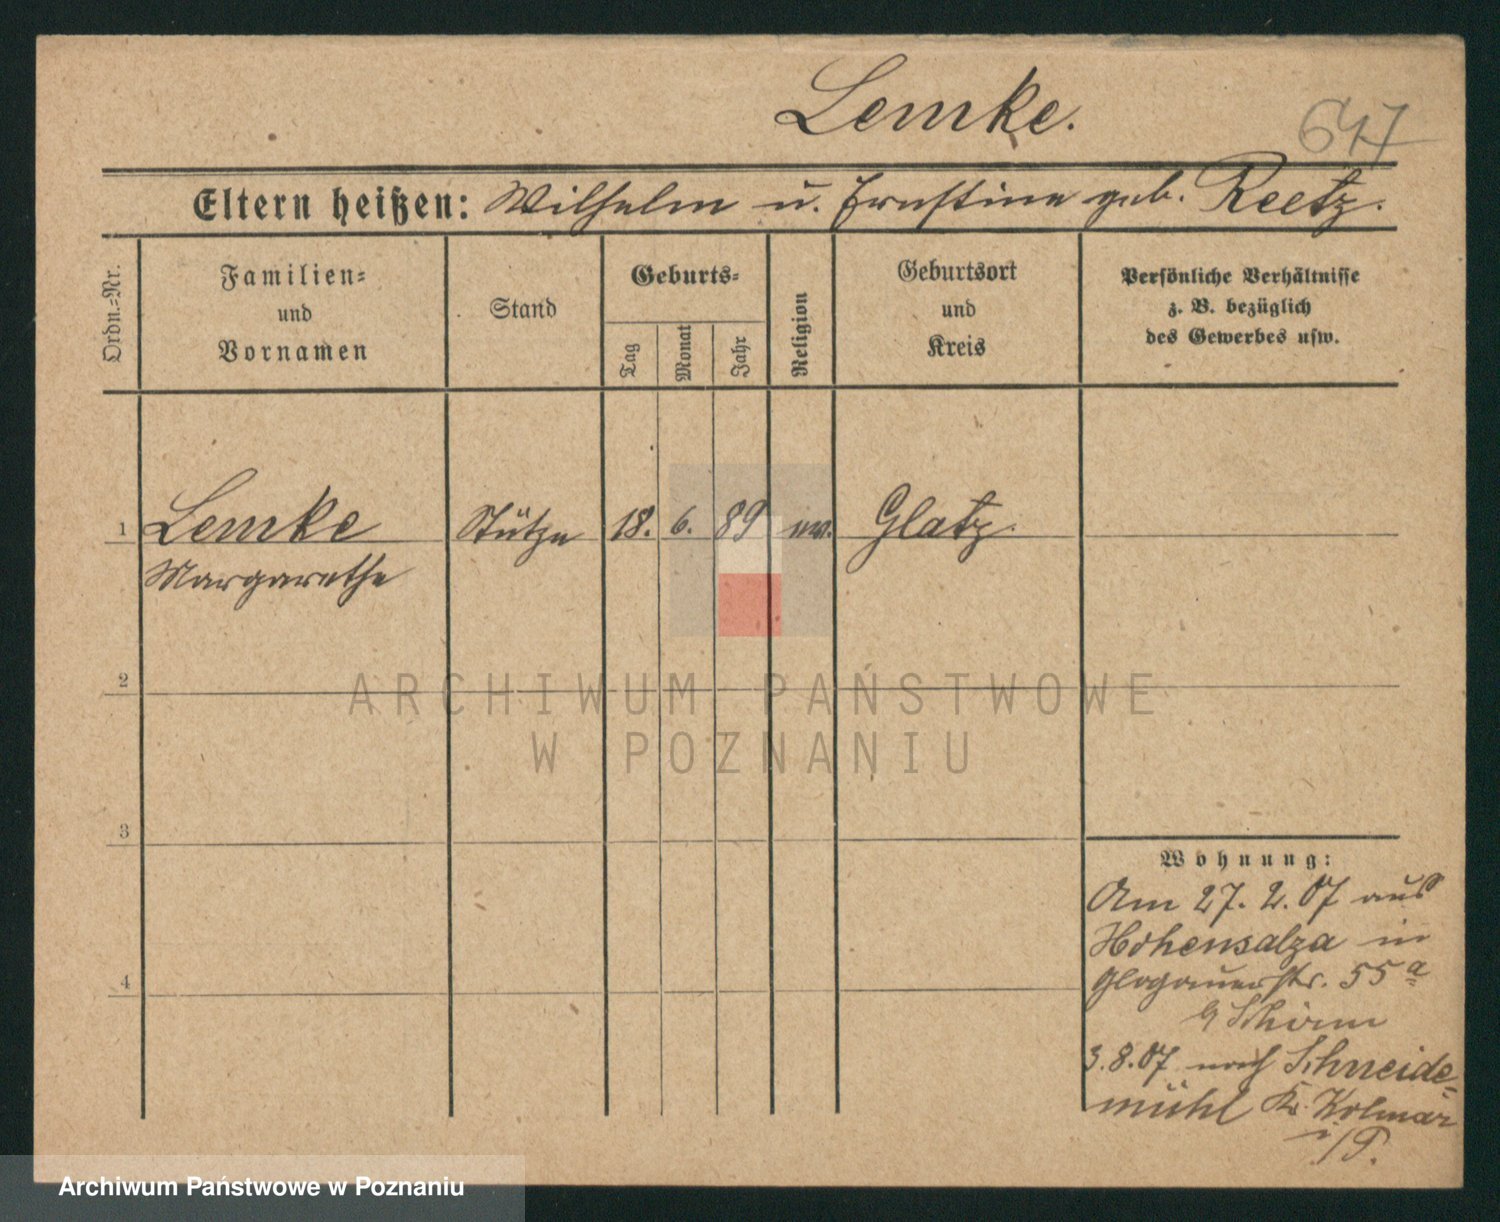 Lemke.
647
Eltern heißen: Wilhelm u. Ernstine geb. Reetz.
Ordn.=Nr.
Familien=
und
Vornamen
Stand
Geburts=
Tag
Monat
Jahr
Religion
Geburtsort
und
Kreis
Persönliche Verhältnisse
z. B. bezüglich
des Gewerbes usw.
1 Lemke Stütze 18. 6. 89 ev. Glatz.
Margarethe
2
3
4
ARCHIWUM PAŃSTWOWE
W POZNANIU
Wohnung:
Am 27. 2. 07 aus
Hohensalza in
Glogauerstr. 55a
b/ Thimm
3.8.07 nach Schneide=
mühl Kr. Kolmar
i/P.
Archiwum Państwowe w Poznaniu